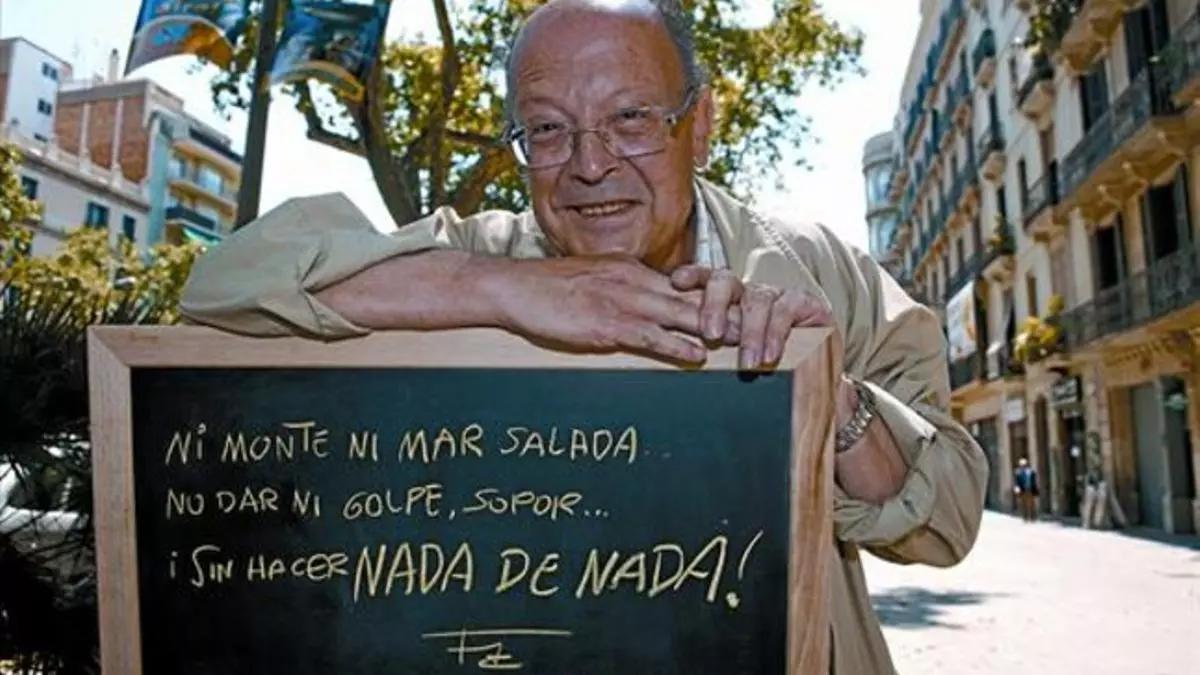 NI MONTE NI MAR SALADA...
NO DAR NI GOLPE, SOPOR...
¡SIN HACER NADA DE NADA!